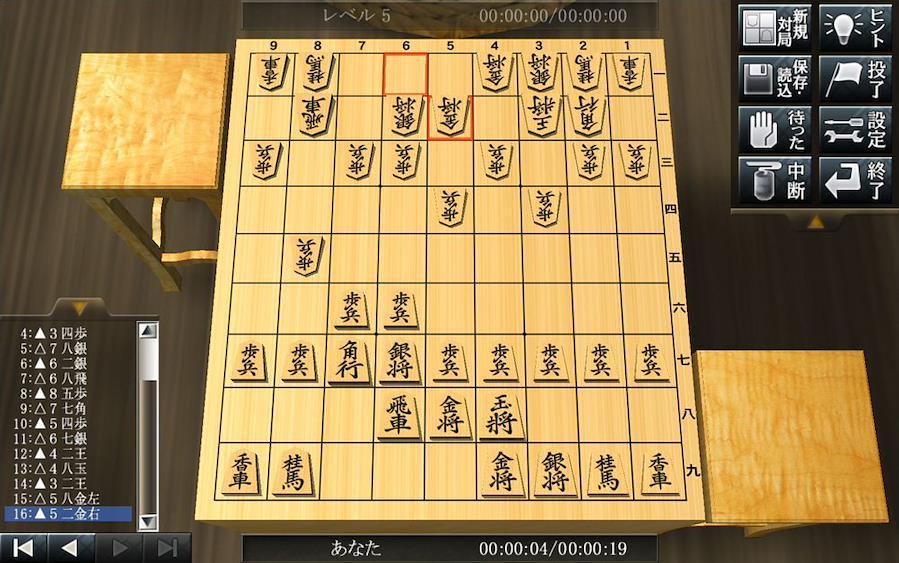 レベル 5 00:00:00/00:00:00
新規対局 ヒント
保存・読込 投了
待った 設定
中断 終了
9 8 7 6 5 4 3 2 1
香車 桂馬 金将 銀将 桂馬 香車 一
飛車 銀将 金将 王将 角行 二
歩兵 歩兵 歩兵 歩兵 歩兵 歩兵 三
歩兵 歩兵 四
歩兵 五
歩兵 歩兵 六
歩兵 歩兵 角行 銀将 歩兵 歩兵 歩兵 歩兵 歩兵 七
飛車 金将 玉将 八
香車 桂馬 金将 銀将 桂馬 香車 九
4:▲3四歩
5:△7八銀
6:▲6二銀
7:△6八飛
8:▲8五歩
9:△7七角
10:▲5四歩
11:△6七銀
12:▲4二王
13:△4八玉
14:▲3二王
15:△5八金左
16:▲5二金右
あなた 00:00:04/00:00:19